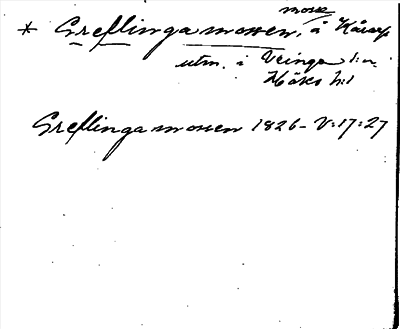 mosse
* Greflinga mossen, å Kårarp
utm. i Veinge s:n
Höks h:d
Greflinga mossen 1826 - V:17:27